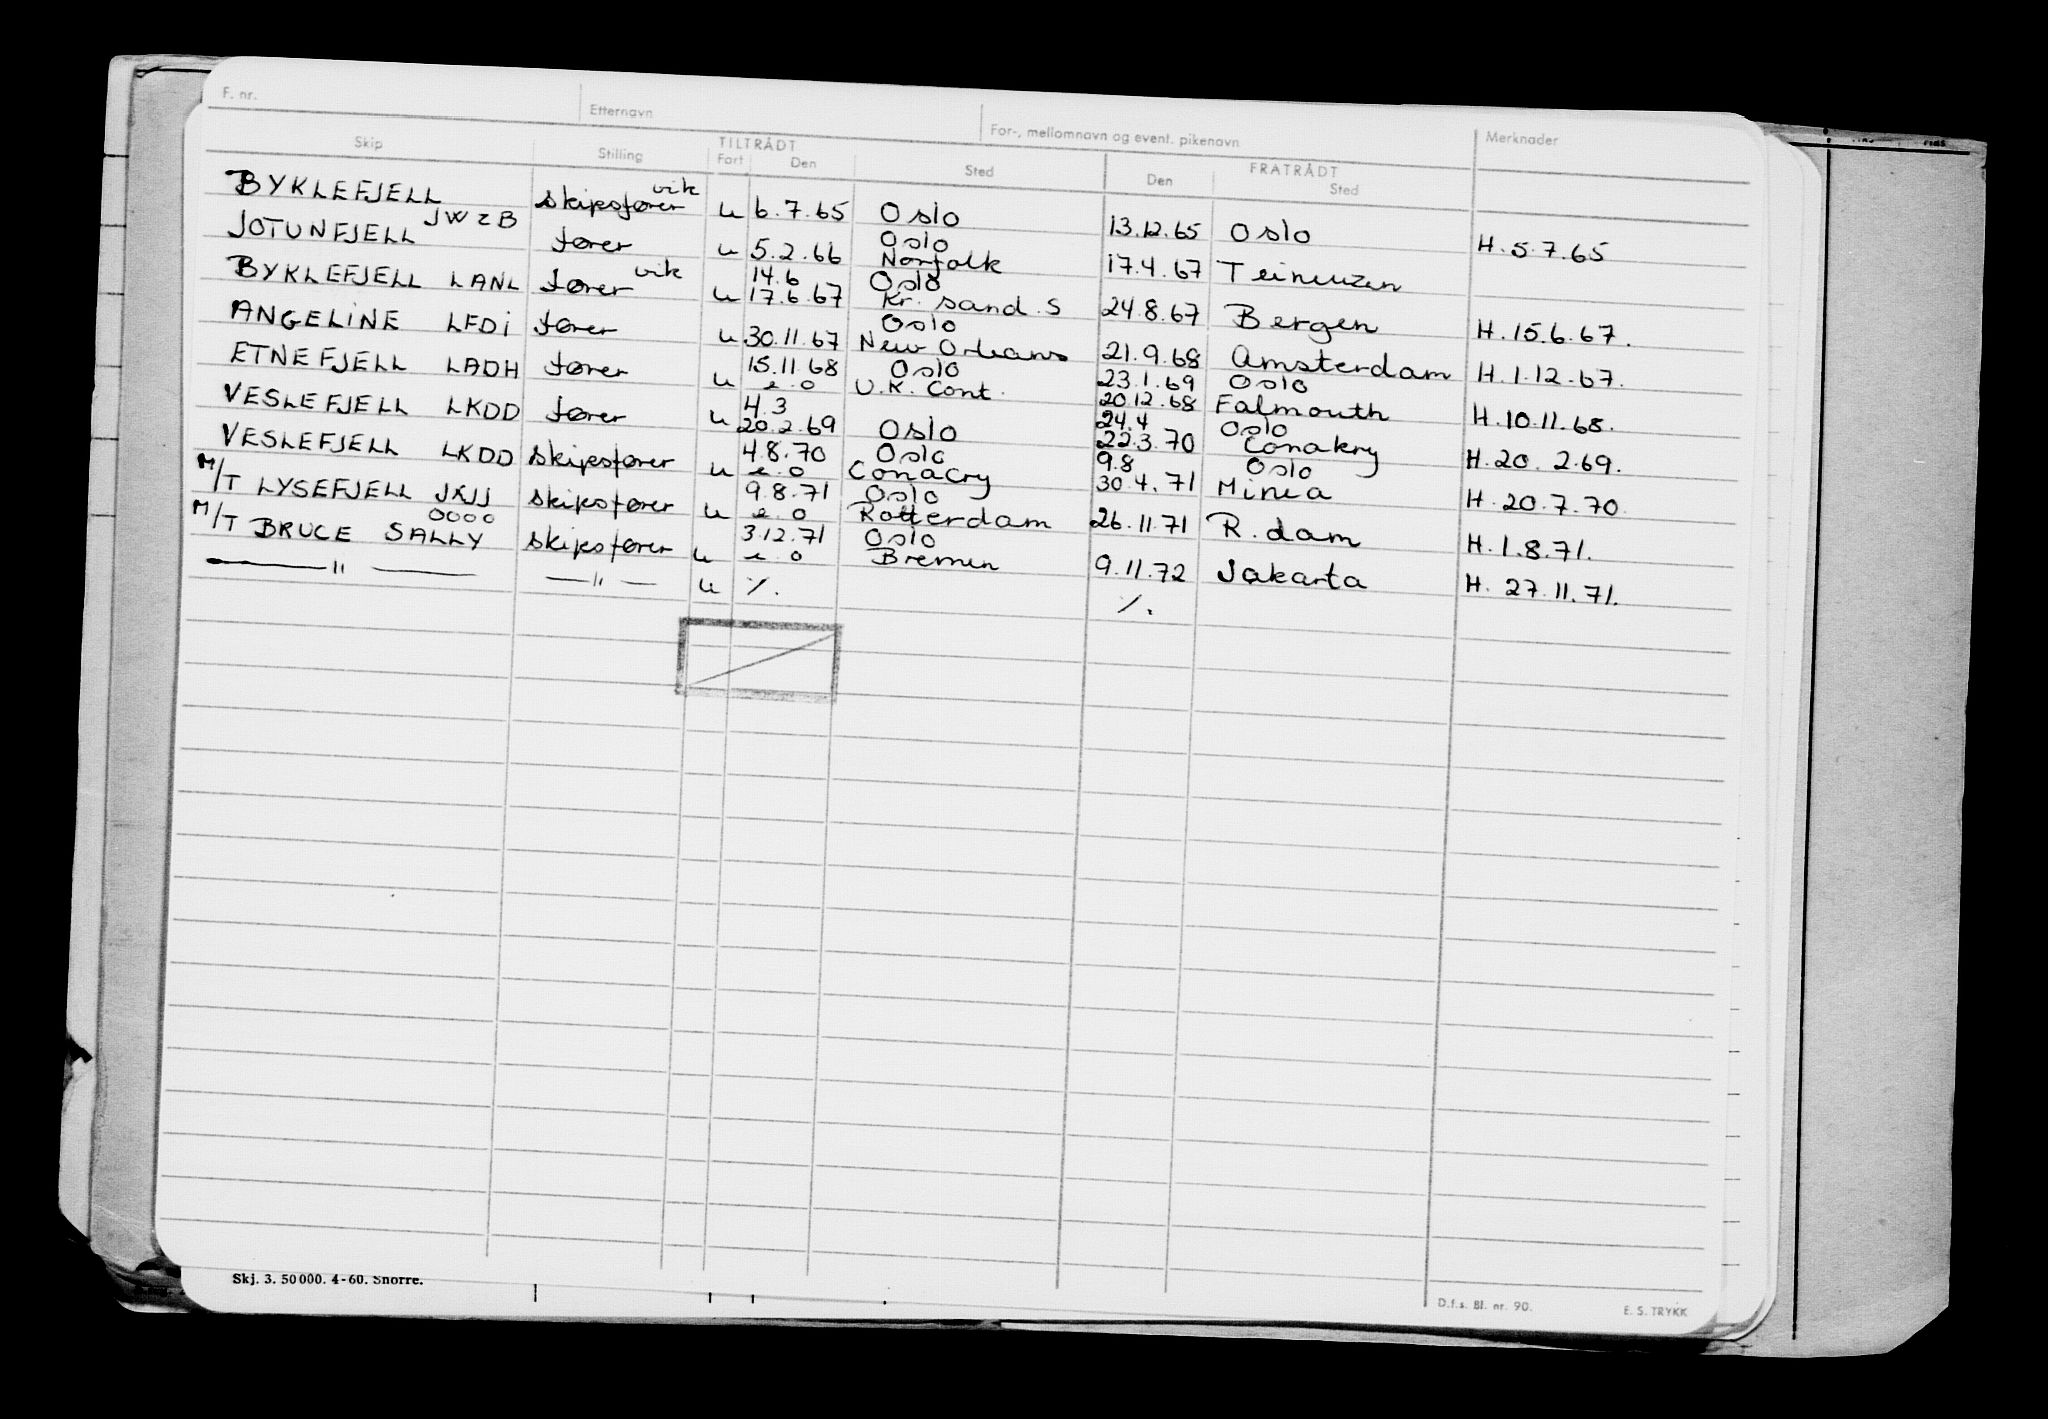 F. nr. Etternavn For-, mellomnavn og event. pikenavn Merknader
Skip Stilling TILTRÅDT Fart Den Sted FRATRÅDT Den Sted
BYKLEFJELL skipsfører vik u 6.7.65 Oslo 13.12.65 Oslo H. 5.7.65
JOTUNFJELL JWZB fører u 5.2.66 Oslo Norfolk 17.4.67 H. 15.6.67.
BYKLEFJELL LANL fører vik u 14.6 17.6.67 Oslo Kr. sand. S 24.8.67 Bergen
ANGELINE LFDI fører u 30.11.67 Oslo New Orleans 21.9.68 Amsterdam H. 1.12.67.
ETNEFJELL LADH fører u 15.11.68 e.o Oslo U.K. Cont. 23.1.69 20.12.68 Oslo Falmouth H. 10.11.68.
VESLEFJELL LKDD fører u 4.3 20.2.69 Oslo 24.4 22.3.70 Oslo Conakry H. 20. 2.69.
VESLEFJELL LKDD skipsfører u 4.8.70 e.o Oslo Conacry 9.8 30.4.71 Oslo Minea H. 20.7.70
M/T LYSEFJELL JXJJ skipsfører u 9.8.71 e.o Oslo Rotterdam 26.11.71 R.dam H. 1.8.71.
M/T BRUCE SALLY OOOO skipsfører u 3.12.71 e.o Oslo Bremen 9.11.72 Jakarta H. 27.11.71.
— " — — " — u %. %.
Skj. 3. 50000. 4-60. Snorre.
D.f.s. Bl. nr. 90. E. S. TRYKK